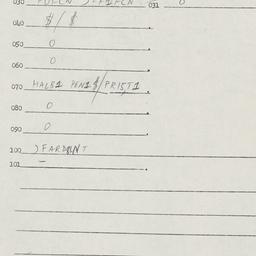 030 031 0
040 $/$
050 0
060 0
070 HALB1 PEN1$/PRIST1
080 0
090 0
100 )FARDNNT
101 –